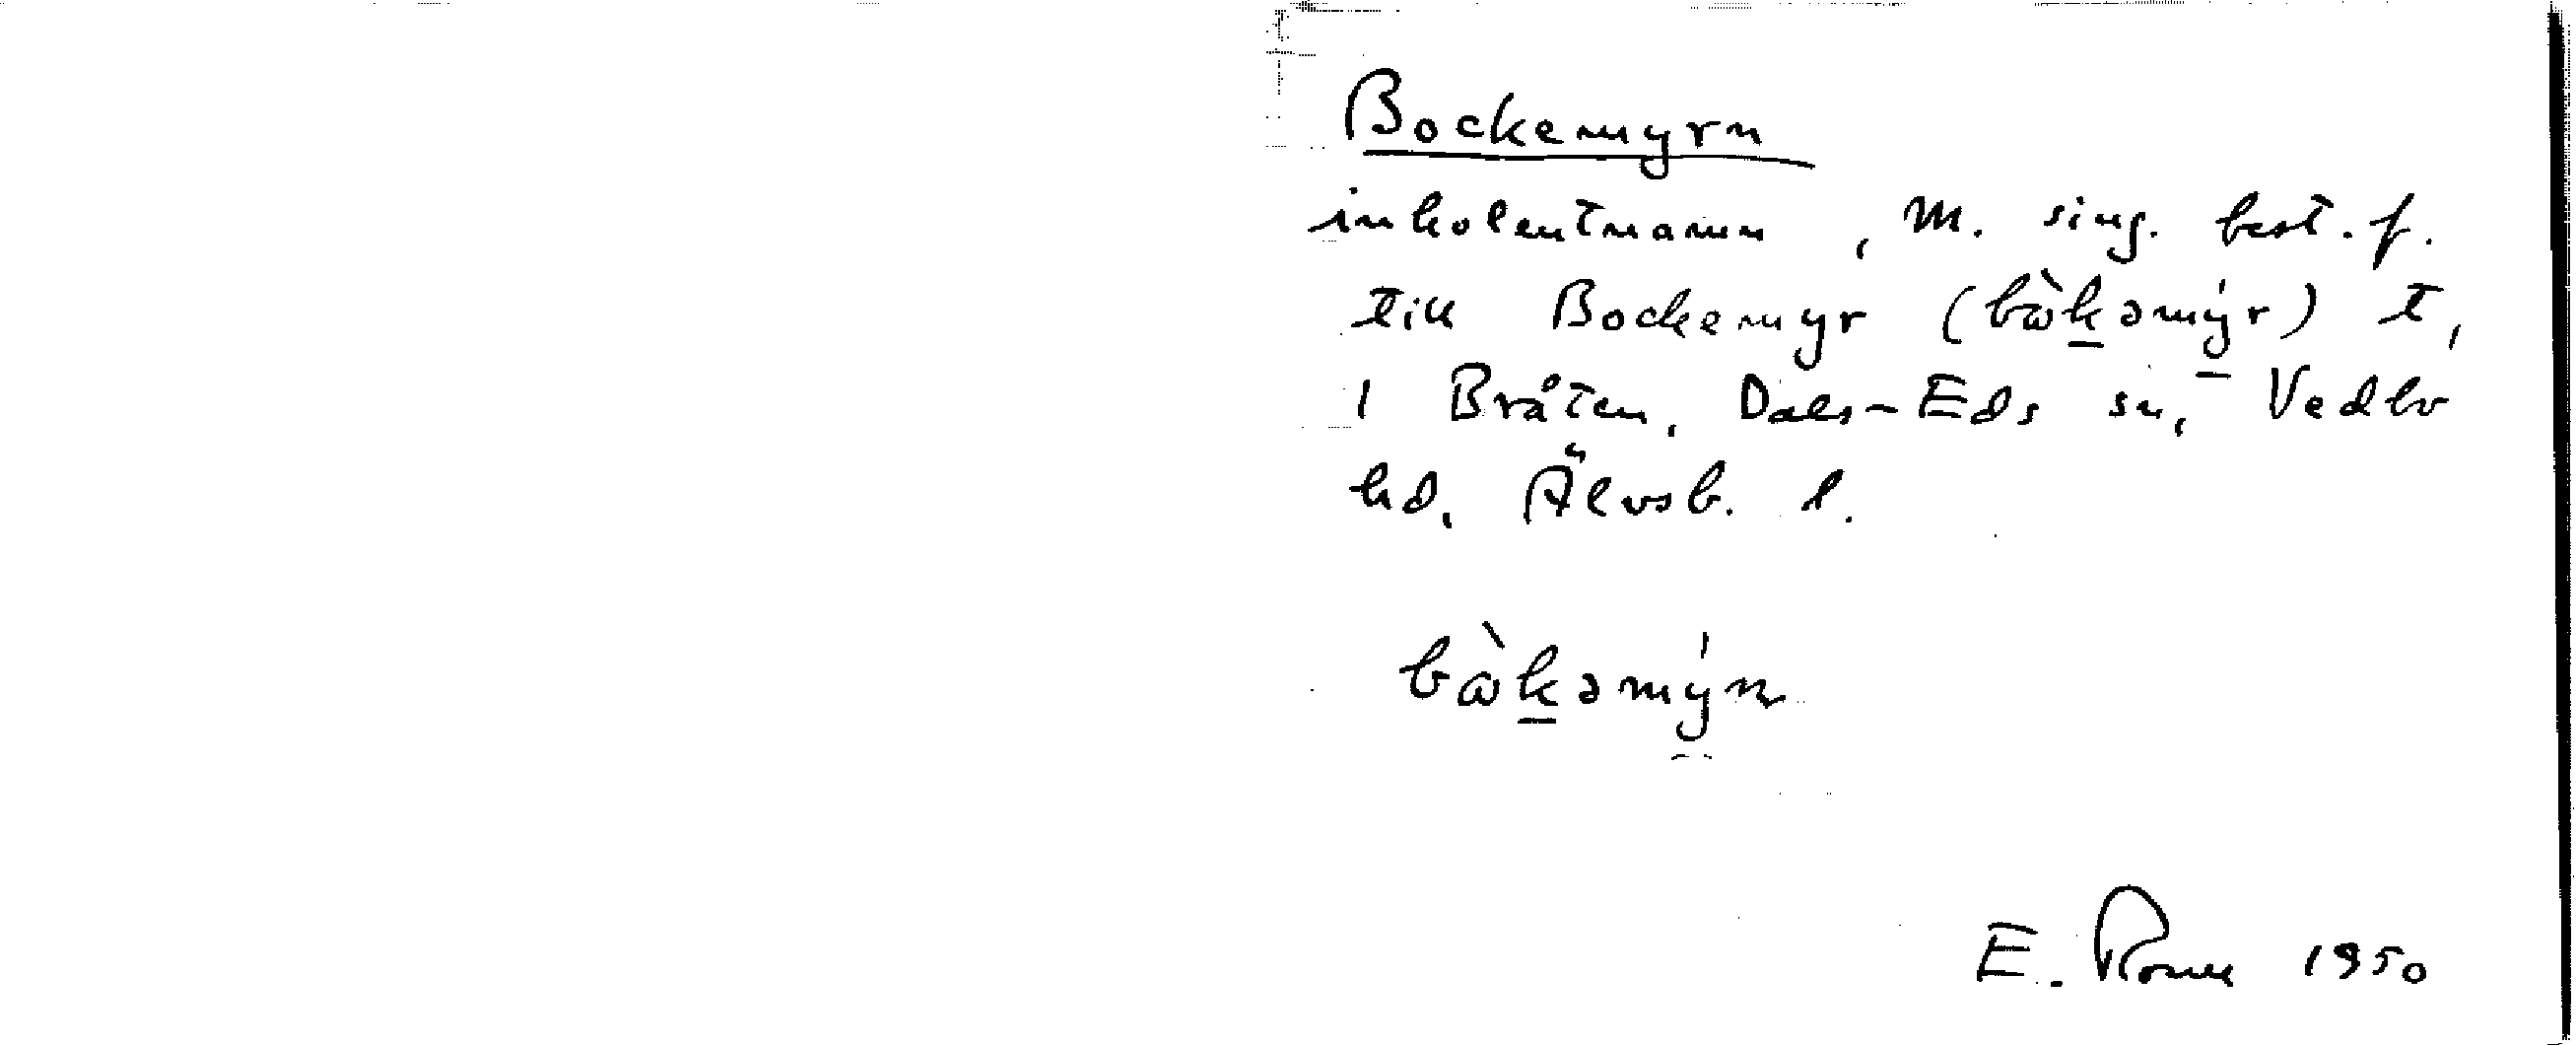 Bockemyrn
inkolentnamn, m. sing. best. f.
till Bockemyr (bὼkəmýr) t,
1 Bråten, Dals-Eds sn, Vedbo
hd, Älvsb. l.
bὼkəmýn
E. 1950